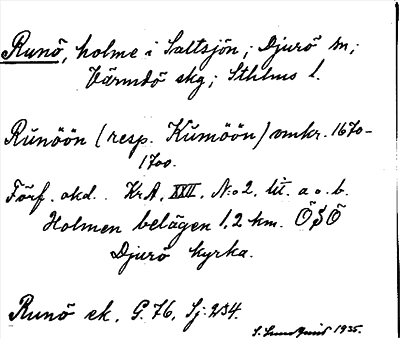 Runö, holme i Saltsjön; Djurö sn;
Värmdö skg; Sthlms l.
Rúnöön (resp. Kúmöön) omkr. 1670-
1700.
Förf. okd. KrA. XXII. N:o 2. lit. a o. b.
Holmen belägen 1,2 km. ÖSÖ
Djurö kyrka.
Runö ek. G. 76, Sj: 234.
S. Lundquist 1935.